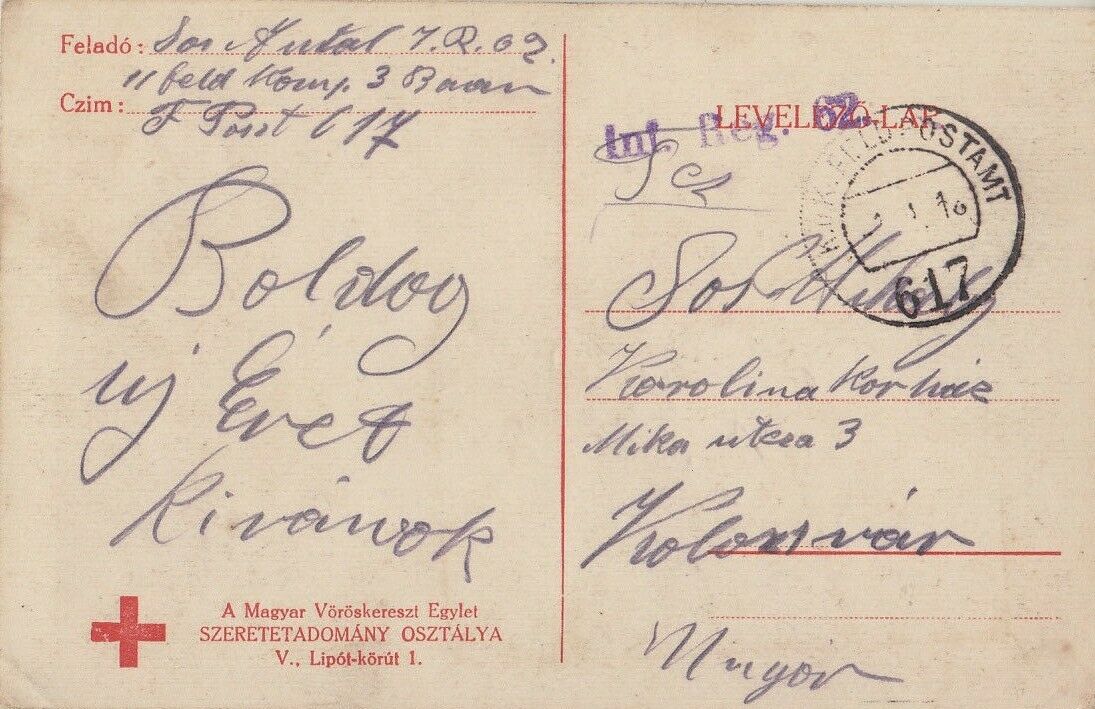 Feladó: Sos Antal I.R. 62.
11 feld Komp. 3 Baon
Czim: F Post 617
Boldog
új Évet
kivánok
A Magyar Vöröskereszt Egylet
SZERETETADOMÁNY OSZTÁLYA
V., Lipót-körút 1.
LEVELEZŐ-LAP
Inf. Reg. 62.
FELDPOSTAMT
617
Sos Mihály
Karolina Korház
Mika utcza 3
Kolozsvár